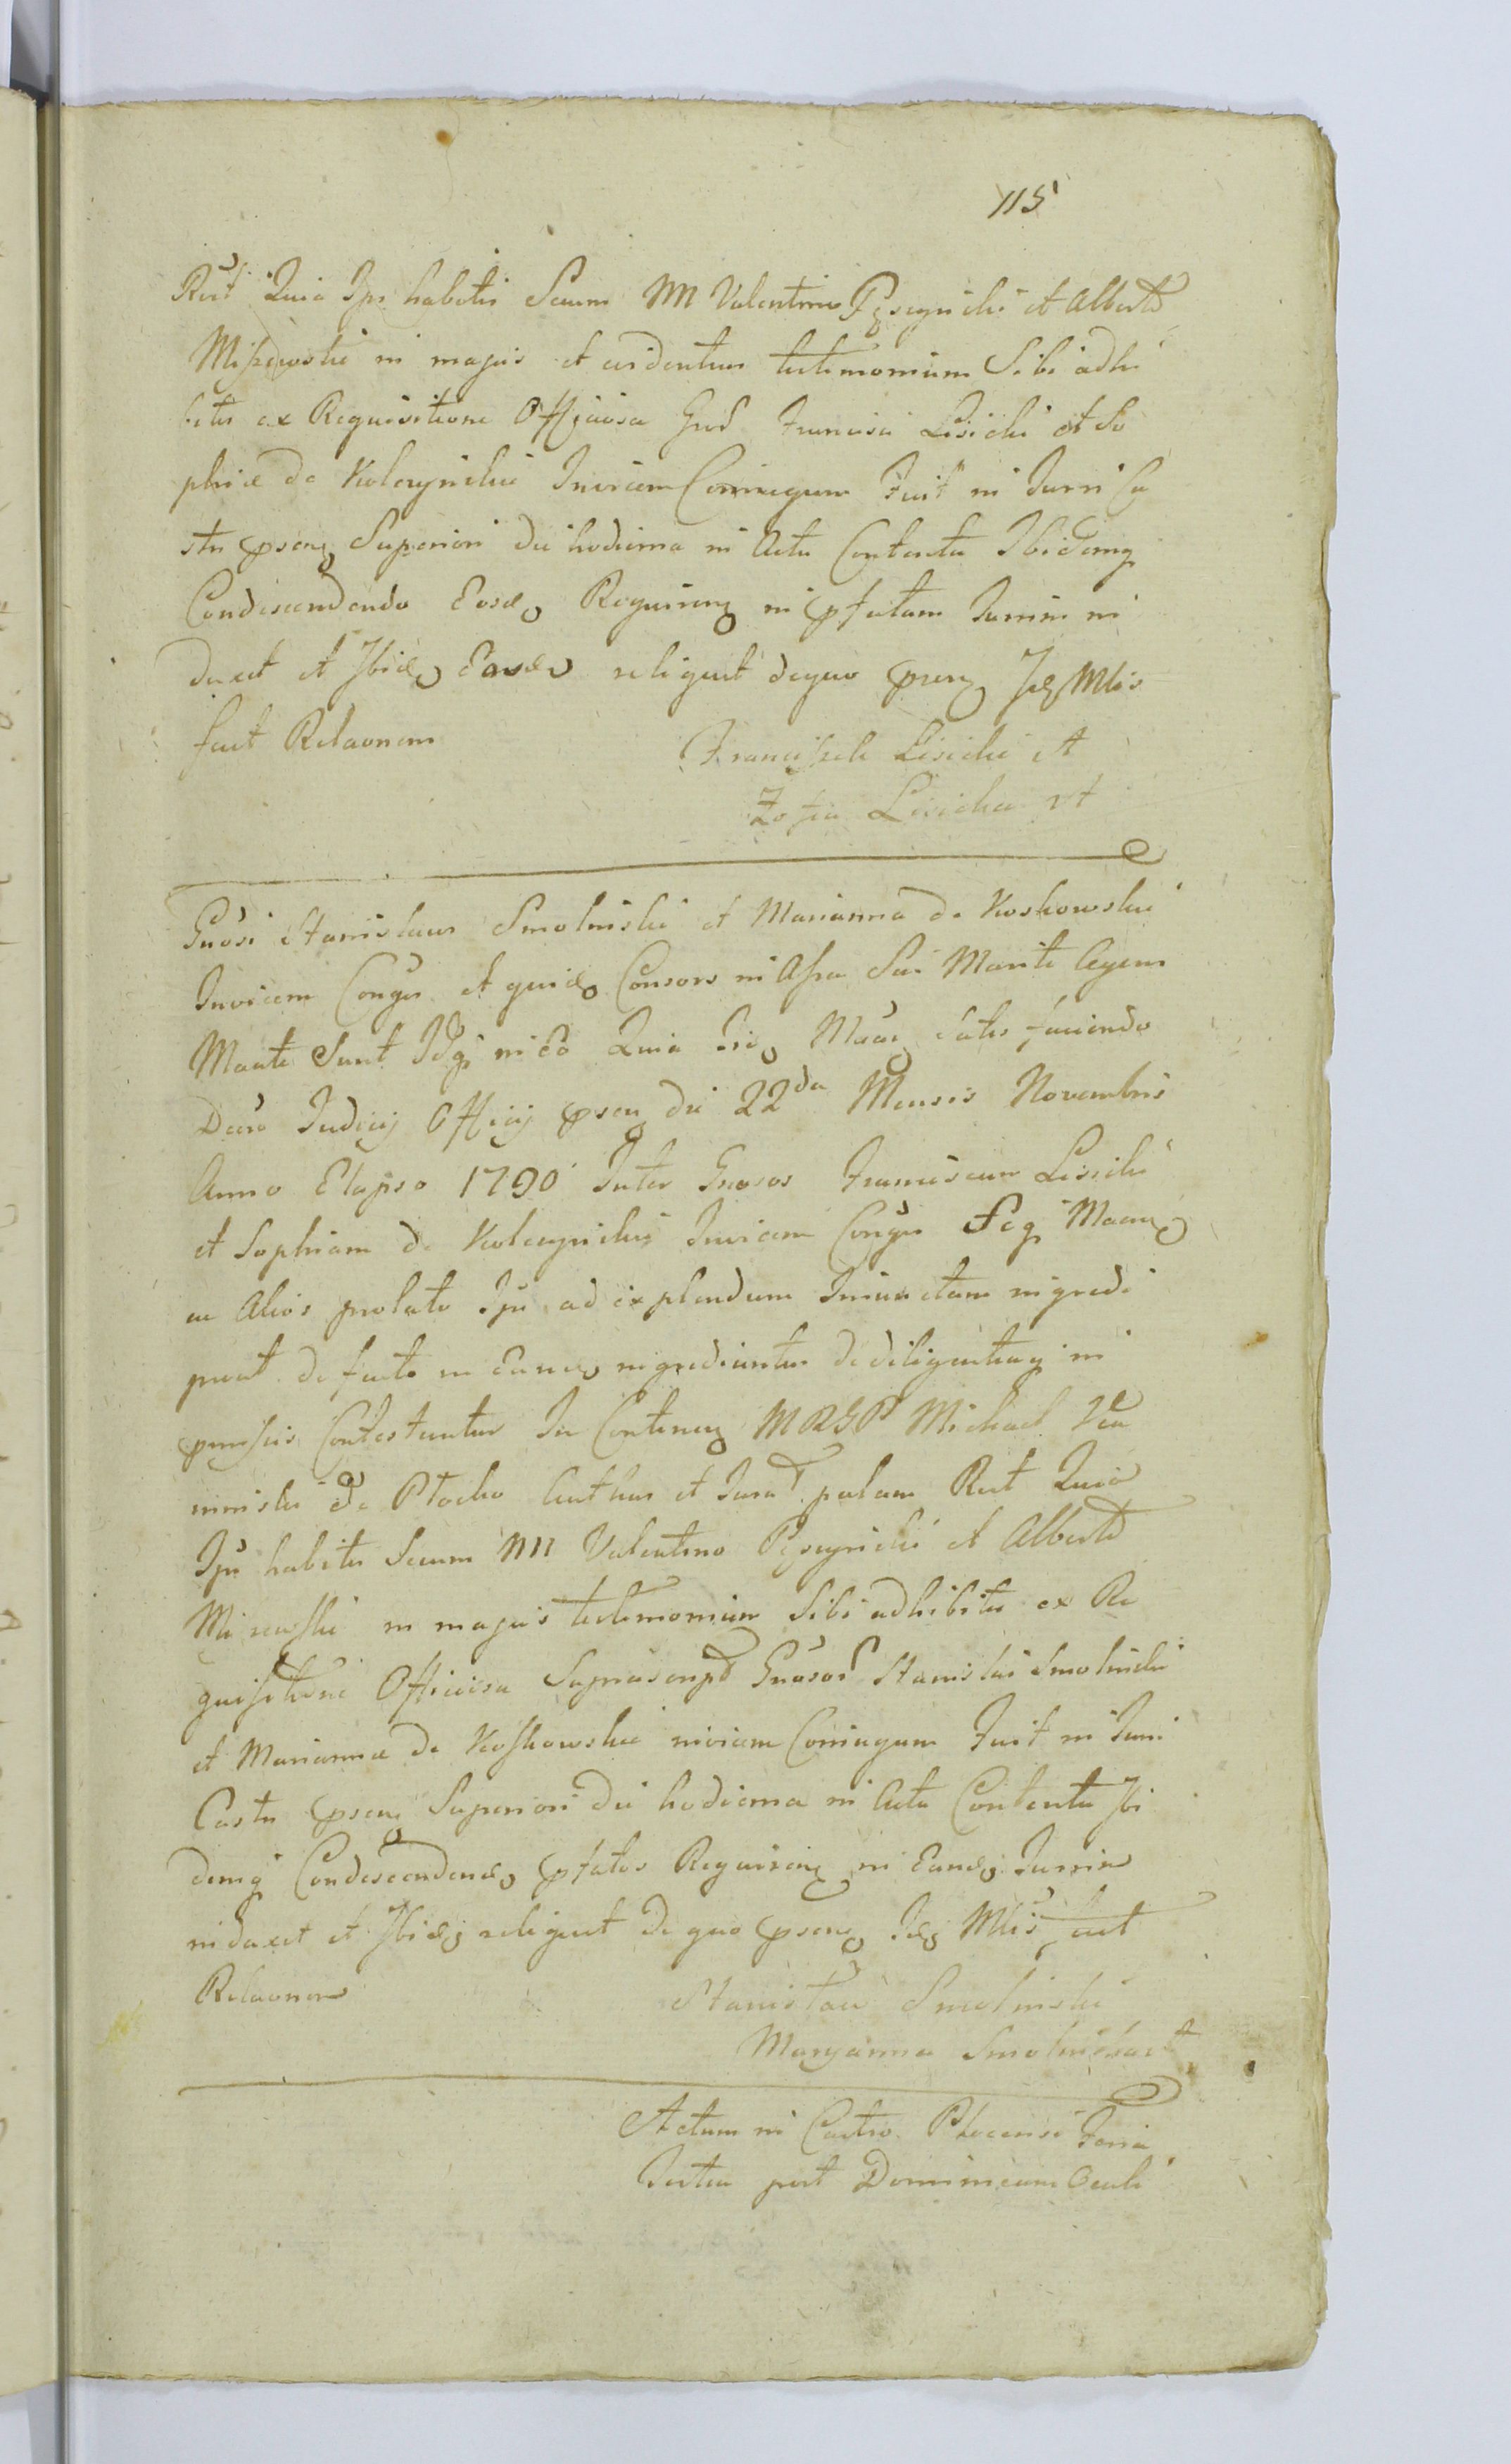 115
Rlt Quia Ipse habitis Secum NN Valentino Pęszynski et Alberto
Miszewski in majus et evidentius testimonium Sibi adhi
bitis ex Requisitione Officiosa Gnd Francisci Lisicki et So
phiæ de Kolczynskie Invicem Conjugum Fuit in Turri Ca
stri psenq Superiori die hodierna in Actu Contenta Ibidemq
Condescendendo Eosd Requirenq in pfatam Turrim in
duxit et Ibid Eosd reliquit dequo psenq Id Mlis
fecit Relaonem
Franciszek Lisicki et
Zofia Lisicka rt
Gnosi Stanislaus Smolinski et Marianna de Koskowskie
Invicem Conges et quid Consors in Assa Sui Mariti Agens
Mante Sunt Idq in Eo Quia Iid Maan Satis faciendo
Decro Judicij Officij psen die 22da Mensis Novembris
Anno Elapso 1790 Inter Gnosos Franciscum Lisicki
et Sophiam de Kolczynskie Invicem Conges Seq Maan
ac Alios prolato Ipsi ad explendum Iniunctam ingredi
prout de facto in Eand ingrediuntur de diligentiaq in
pmissis Contestantur In Contineq MRGP Michael
ninski de Plocko Authus et Jurat palam Rlt Quia
Ipse habitis Secum NN Valentino Pęszynski et Alberto
Miszewski in majus testimonium Sibi adhibitis ex Re
quisitione Officiosa Suprascript Gnosor Stanislai Smolinski
et Mariannæ de Koskowskie invicem Coniugum Fuit in Turri
Castri psenq Superiori die hodierna in Actu Contenta Ibi
demq Condescendend pfatos Requirenq in Eand Turrim
induxit et Ibid reliquit de quo psenq Id Mlis fecit
Relaonem
Stanisław Smolinski
Maryanna Smolinska rt
Actum in Castro Plocensi Feria
Tertia post Dominicam Oculi